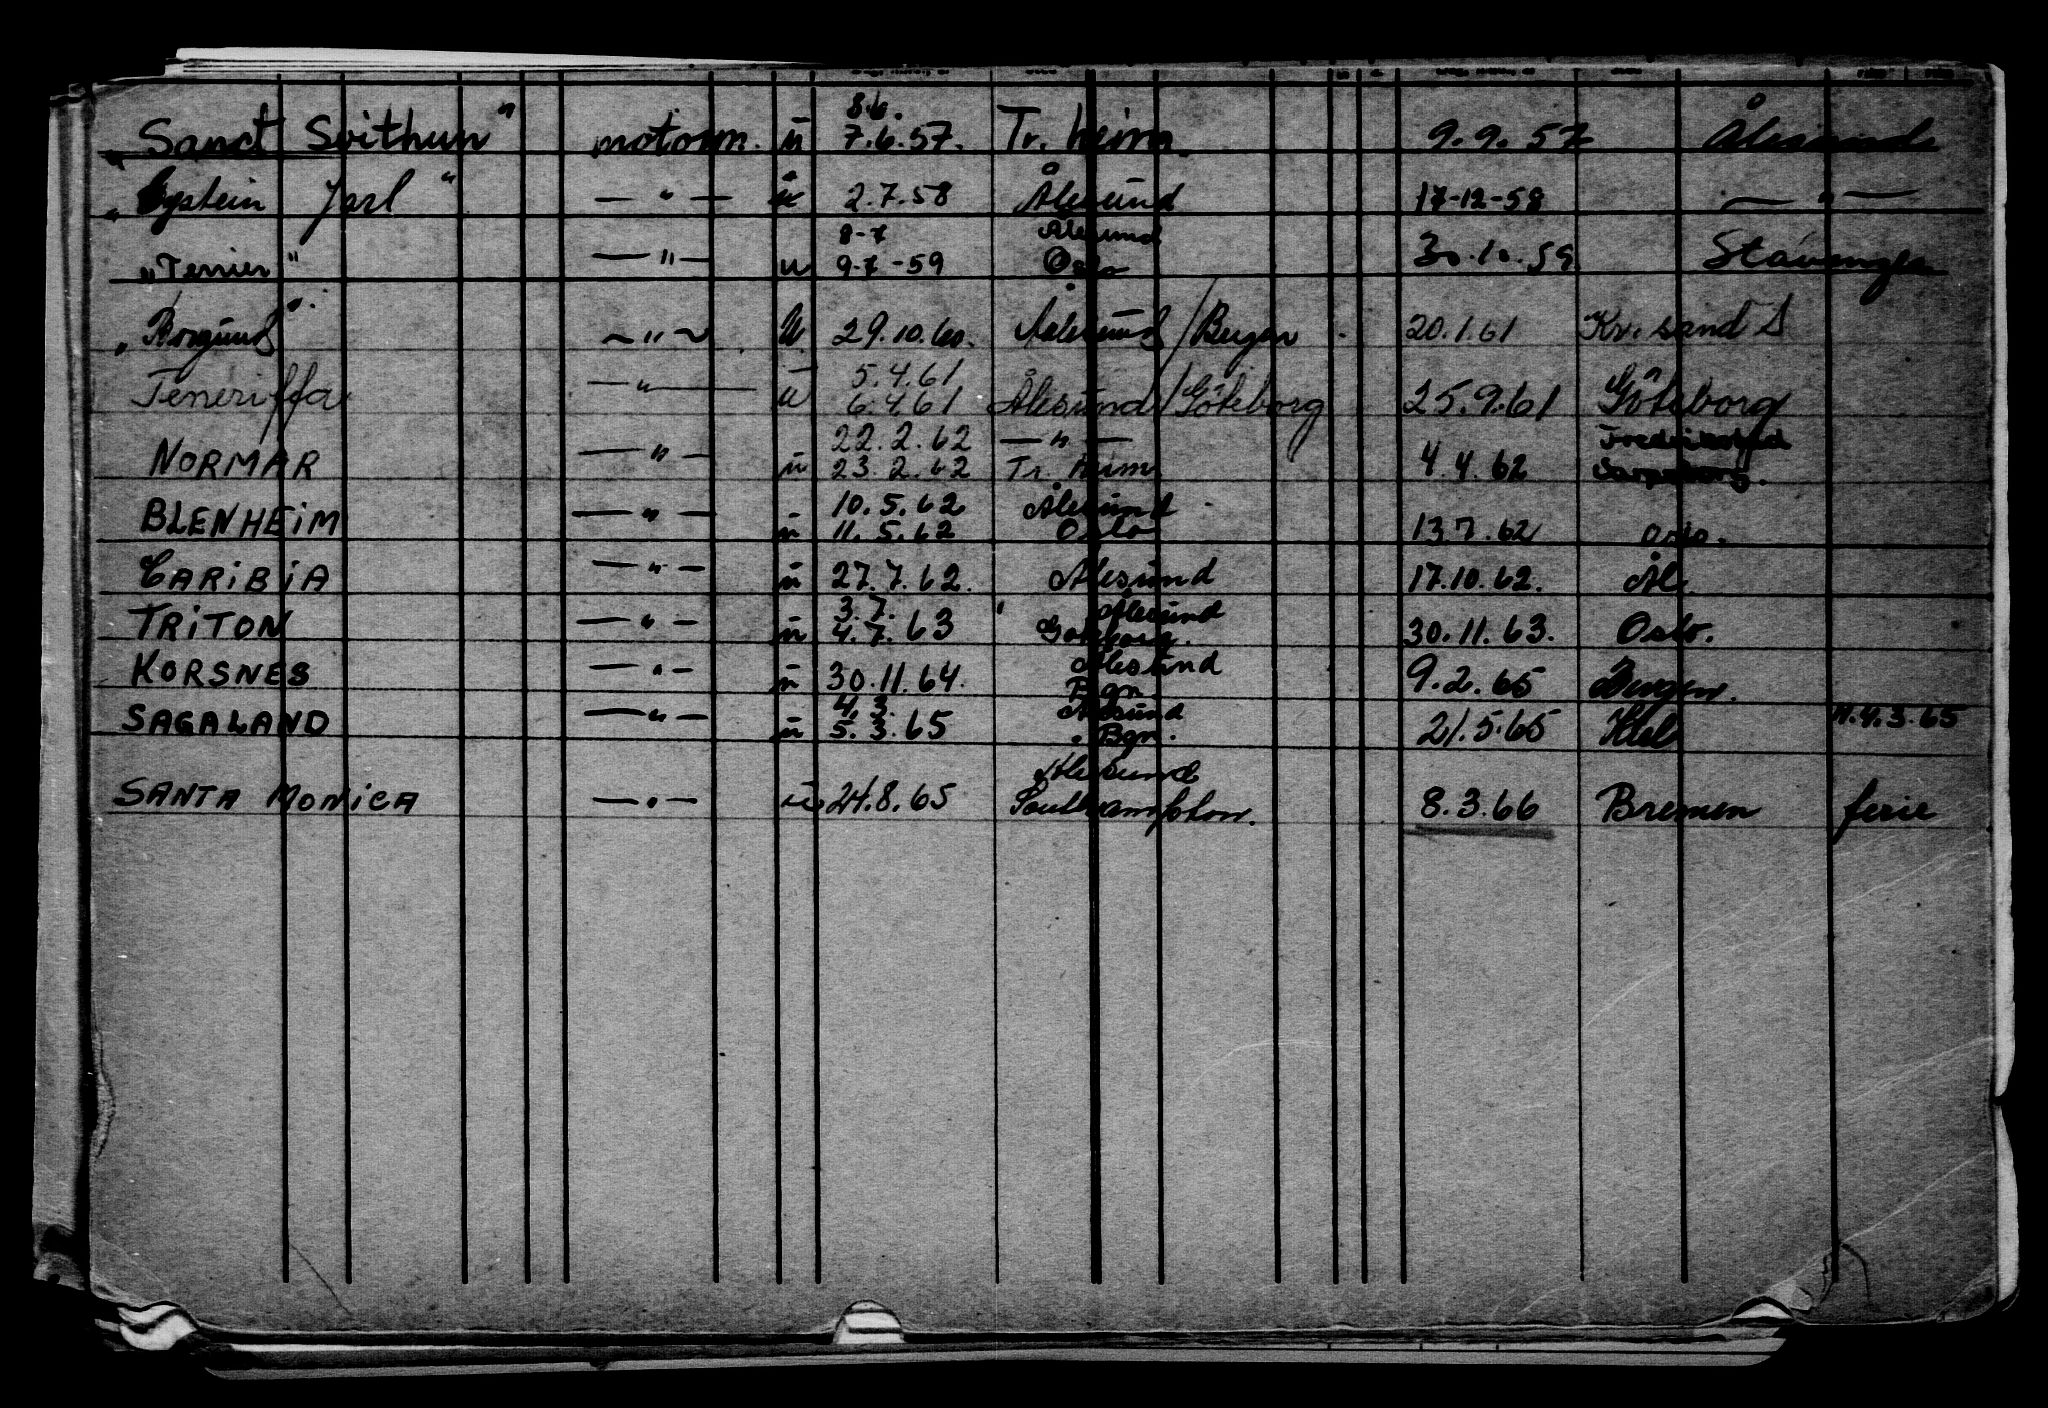 8.6.
„Sanct Svithun" motorm. ü 7.6.57. Tr. heim. 9.9.57 Ålesund
„Eystein Jarl" — " — ü 2.7.58 Ålesund 17-12-58 — " —
8-7 Ålesund
„Terrier" — " — u 9-7-59 Oslo 30.10.59 Stavanger
„Borgund". ~ " ~ u 29.10.60. Aalesund/Bergen. 20.1.61 Kr. sand S
5.4.61
Teneriffa — " — u 6.4.61 Ålesund/Göteborg 25.9.61 Göteborg
22.2.62 — " — Fredrikstad
NORMAR — " — ü 23.2.62 Tr. heim 4.4.62 Sarpsborg.
10.5.62 Ålesund
BLENHEiM — " — ü 11.5.62 Oslo 13.7.62 Oslo.
CARiBiA — " — ü 27.7.62. Ålesund 17.10.62. Ål.
3.7. Ålesund
TRiTON — " — ü 4.7.63 Göteborg. 30.11.63. Oslo.
Ålesund
KORSNES — " — ü 30.11.64. Bgn 9.2.65 Bergen.
4.3. Ålesund 4.3.65
SAGALAND — " — ü 5.3.65 Bgn. 21.5.65
Ålesund
SANTA MONiCA — " — ü 24.8.65 Southampton. 8.3.66 Bremen ferie